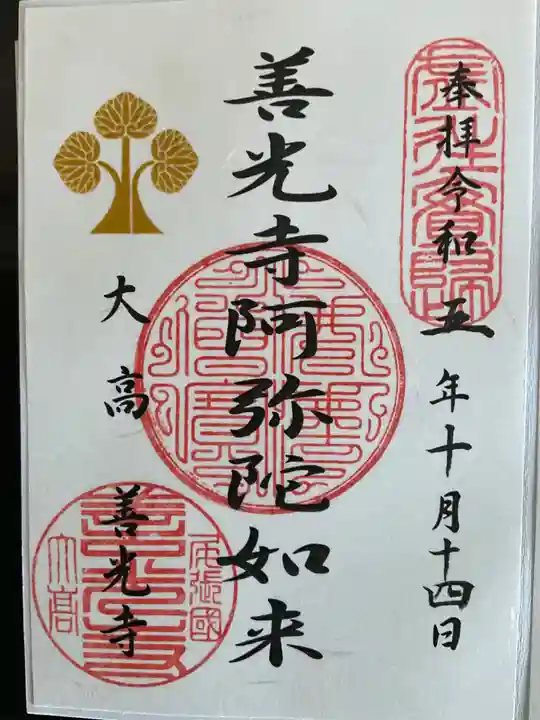 奉拝令和五年十月十四日
善光寺阿弥陀如来
大高
善光寺
尾張國
善光寺
大高